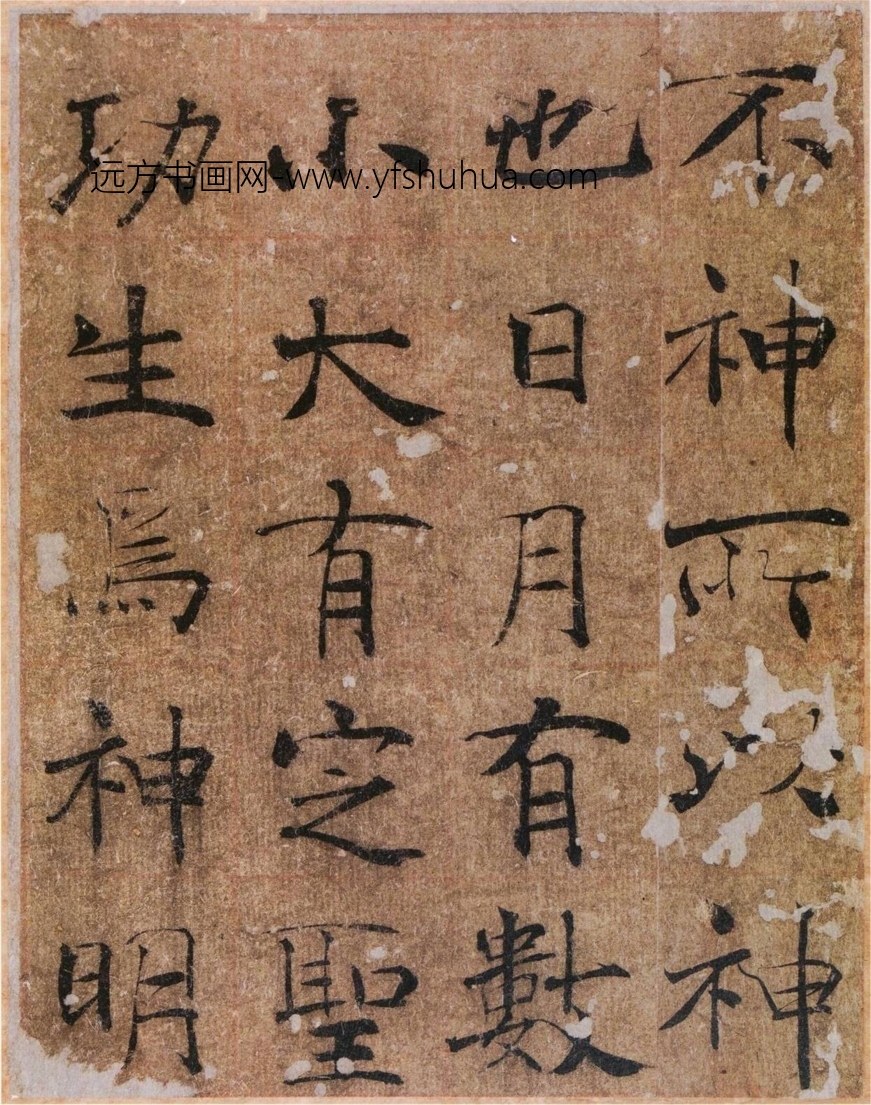 不神所以神
也日月有數
小大有定聖
功生焉神明
远方书画网-www.yfshuhua.com